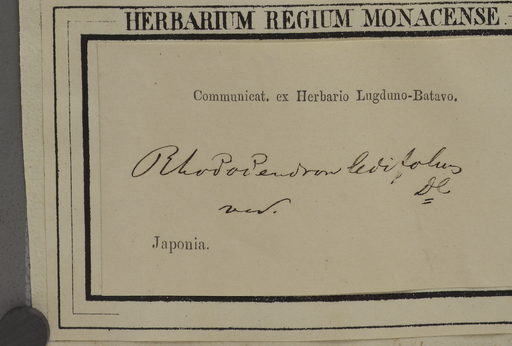 HERBARIUM REGIUM MONACENSE.
Communicat. ex Herbario Lugduno-Batavo.
Rhododendron ledifolium
DC
var.
Japonia.